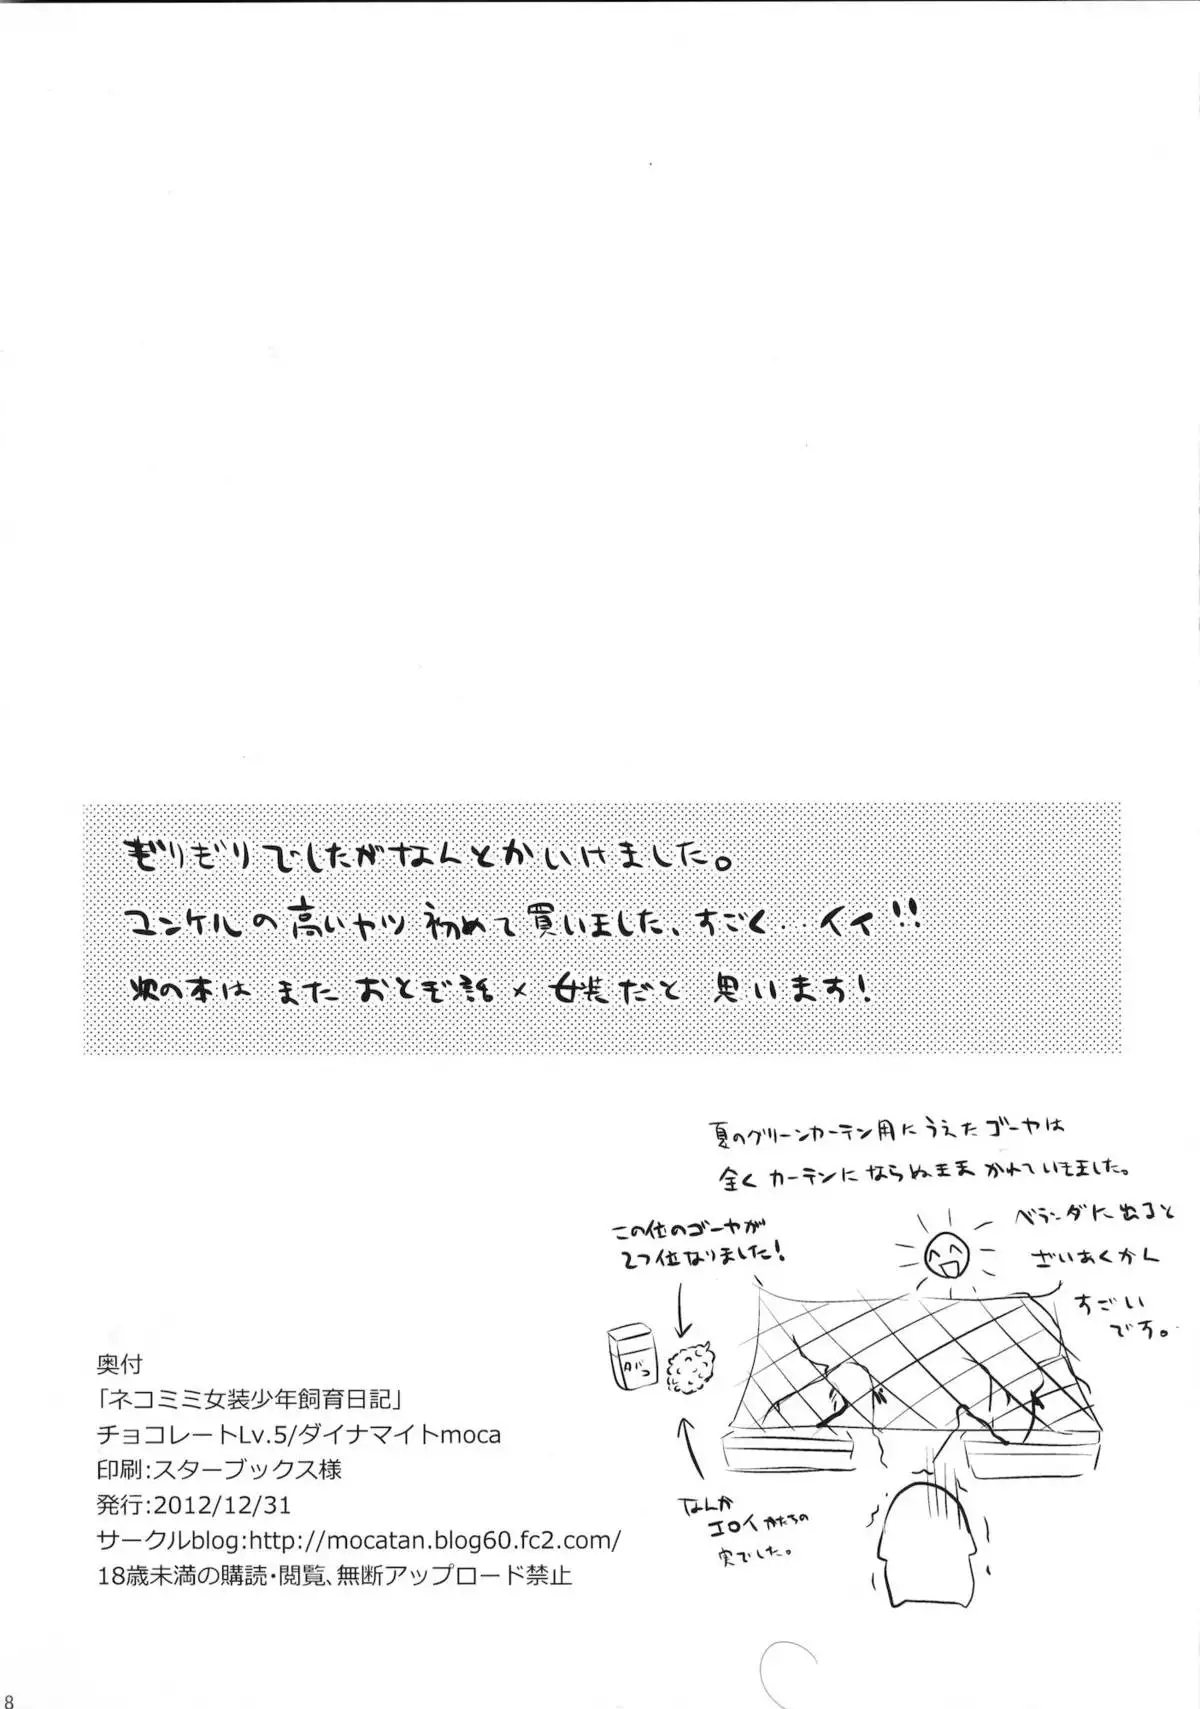 ぎりぎりでしたがなんとかいけました。
ユンケルの高いヤツ初めて買いました、すごく…イイ!!
次の本は またおとぎ話×女装だと思います!
夏のグリーンカーテン用にうえたゴーヤは
全くカーテンにならぬまま かれていきました。
ベランダに出ると
ざいあくかん
すごい
です。
この位のゴーヤが
2つ位なりました!
タバコ
なんか
エロイかたちの
実でした。
奥付
「ネコミミ女装少年飼育日記」
チョコレートLv.5/ダイナマイトmoca
印刷:スターブックス様
発行:2012/12/31
サークルblog:http://mocatan.blog60.fc2.com/
18歳未満の購読・閲覧、無断アップロード禁止
8